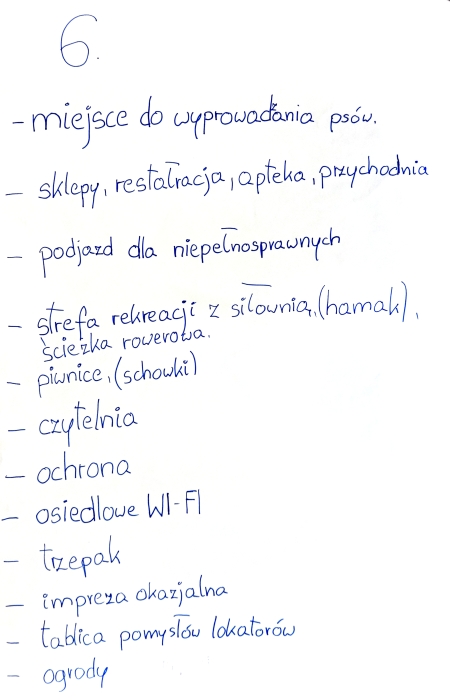 6.
- miejsce do wyprowadzania psów.
- sklepy, restalracja, apteka, przychodnia
- podjazd dla niepełnosprawnych
- strefa rekreacji z siłownią, (hamak),
ścieżka rowerowa.
- piwnice, (schowki)
- czytelnia
- ochrona
- osiedlowe WI-FI
- trzepak
- impreza okazjalna
- tablica pomysłów lokatorów
- ogrody